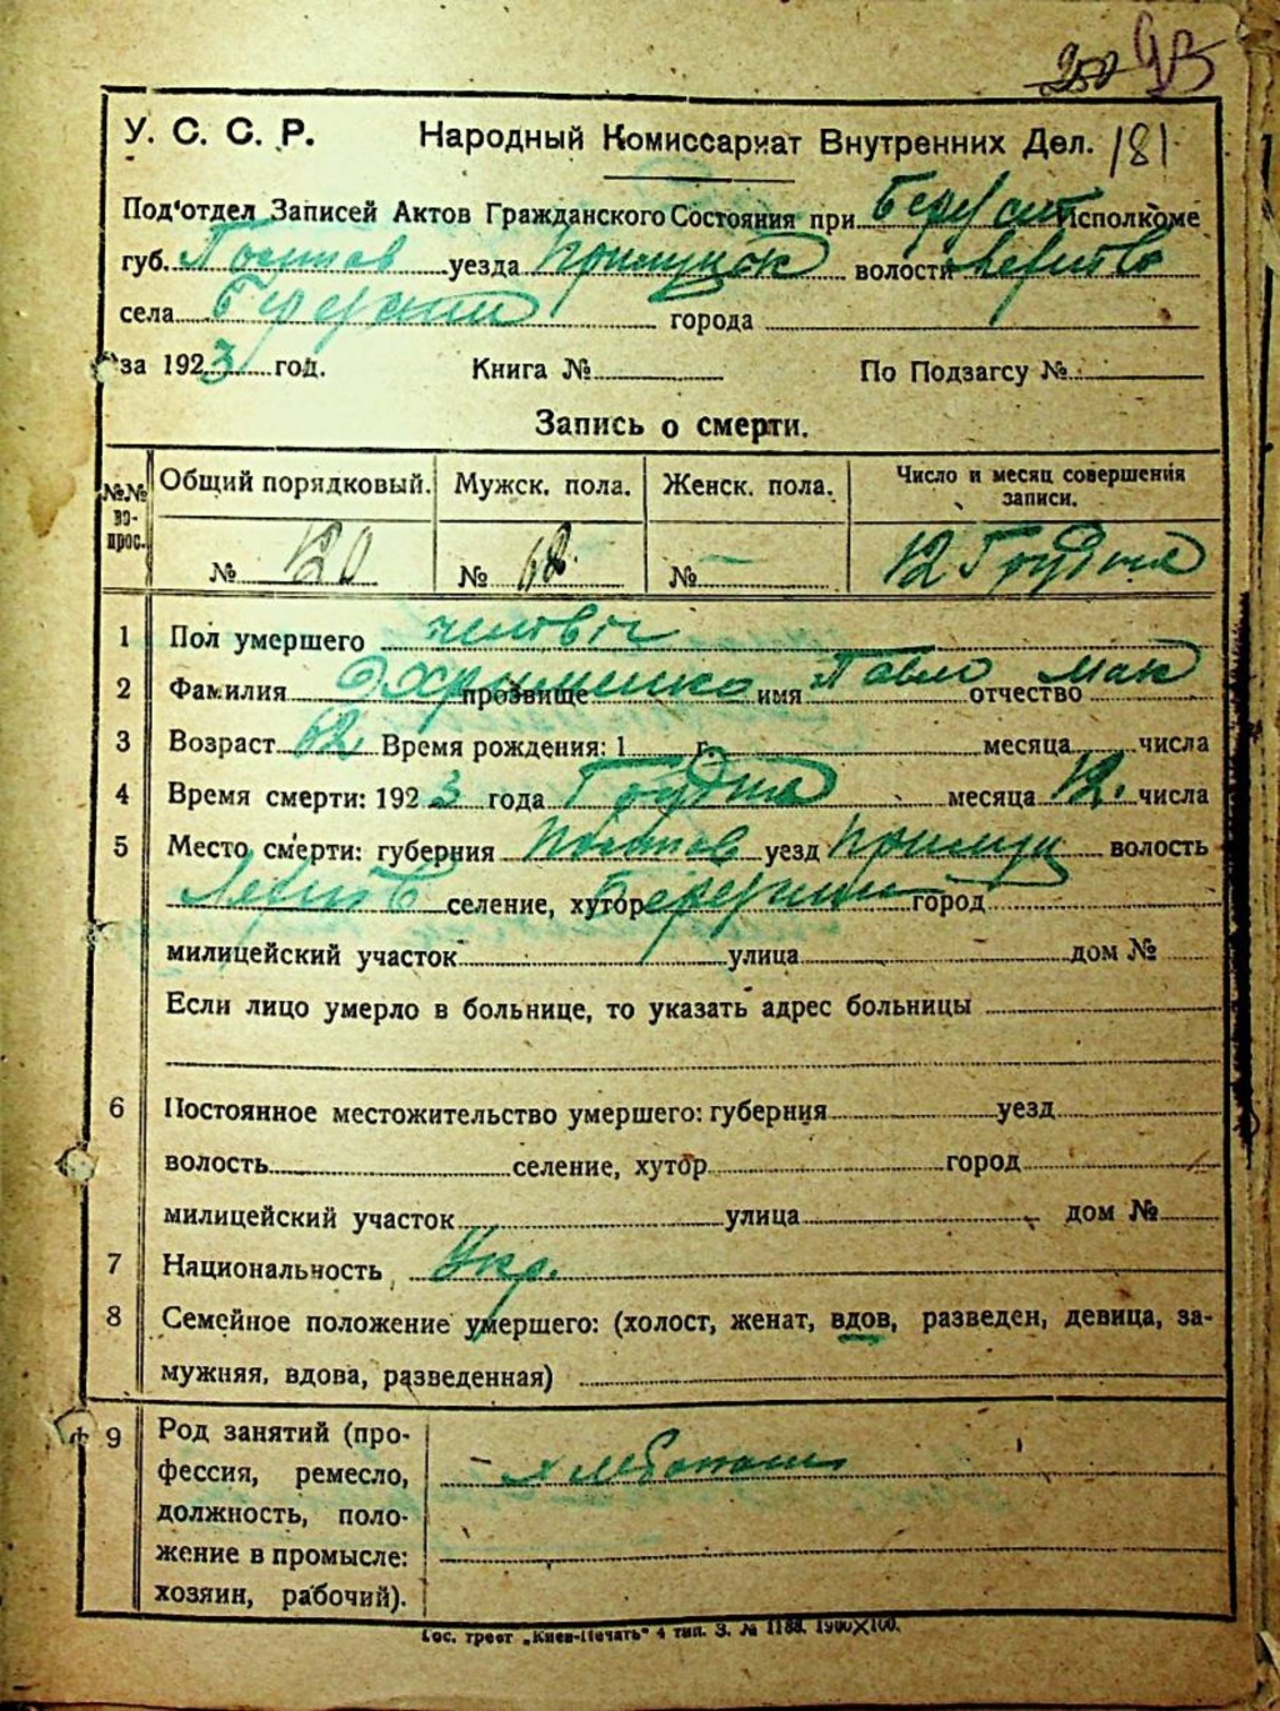 250 93
У. С. С. Р. Народный Комиссариат Внутренних Дел. 181
Под'отдел Записей Актов Гражданского Состояния при Исполкоме
губ. Полтав уезда Прилуцьк волости
села города
за 1923 год. Книга № По Подзагсу №
Запись о смерти.
№№ во- прос. Общий порядковый. Мужск. пола. Женск. пола. Число и месяц совершения записи.
№ 120 № 68 № — 12 Грудня
1 Пол умершего
2 Фамилия прозвище имя Павло отчество Мак
3 Возраст 62 Время рождения: 1 г. месяца числа
4 Время смерти: 1923 года Грудня месяца 12. числа
5 Место смерти: губерния Полтав уезд Прилуц волость
селение, хутор город
милицейский участок улица дом №
Если лицо умерло в больнице, то указать адрес больницы
6 Постоянное местожительство умершего: губерния уезд
волость селение, хутор город
милицейский участок улица дом №
7 Национальность Укр.
8 Семейное положение умершего: (холост, женат, вдов, разведен, девица, за-
мужняя, вдова, разведенная)
9 Род занятий (про- хлебопаш
фессия, ремесло,
должность, поло-
жение в промысле:
хозяин, рабочий).
Гос. трест „Киев-Печать" 4 тип. З. № 1188. 1900×100.